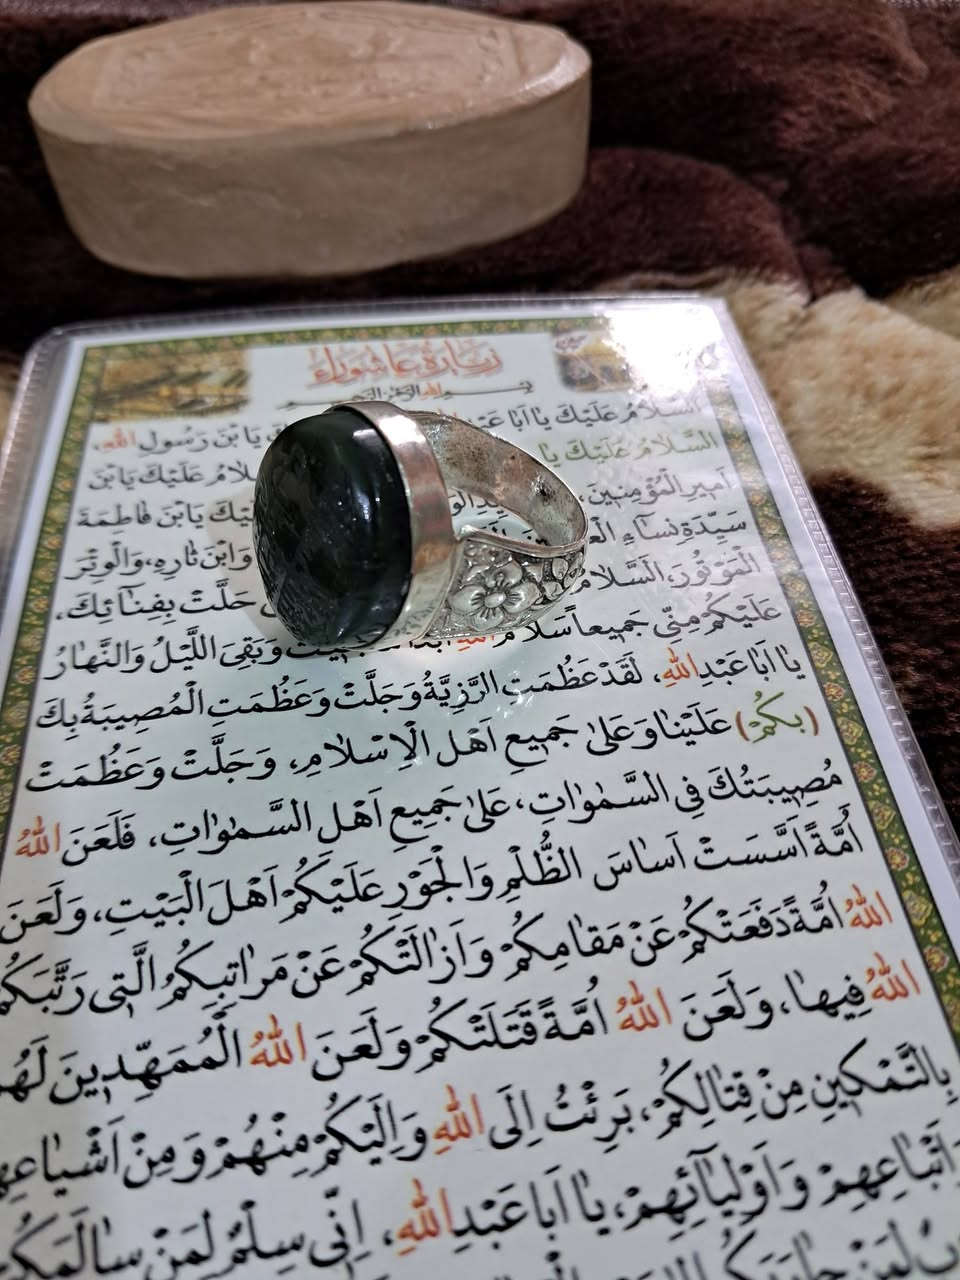 زيارة عاشوراء
بسم الله الرحمن الرحيم
السَّلامُ عَلَيْكَ يٰا اَبٰا عَبْدِ يَا بْنَ رَسُولِ اللهِ،
السَّلامُ عَلَيْكَ يٰا عَلَيْكَ يَابْنَ
اَميرِ الْمُؤْمِنينَ، يَابْنَ فٰاطِمَةَ
سَيِّدَةِ نِسٰآءِ وَابْنَ ثٰارِهِ، وَالْوِتْرَ
الْمَوْتُورَ، اَلسَّلامُ حَلَّتْ بِفِنٰآئِكَ،
عَلَيْكُمْ مِنّي جَميعاً سَلامُ اللهِ وَبَقِيَ اللَّيْلُ وَالنَّهٰارُ
يٰا اَبٰا عَبْدِ اللهِ، لَقَدْ عَظُمَتِ الرَّزِيَّةُ وَجَلَّتْ وَعَظُمَتِ الْمُصيبَةُ بِكَ
(بِكُمْ) عَلَيْنٰا وَعَلىٰ جَميعِ اَهْلِ الْاِسْلامِ، وَجَلَّتْ وَعَظُمَتْ
مُصيبَتُكَ فِي السَّمٰوٰاتِ، عَلىٰ جَميعِ اَهْلِ السَّمٰوٰاتِ، فَلَعَنَ اللهُ
اُمَّةً اَسَّسَتْ اَسٰاسَ الظُّلْمِ وَالْجَوْرِ عَلَيْكُمْ اَهْلَ الْبَيْتِ، وَلَعَنَ
اللهُ اُمَّةً دَفَعَتْكُمْ عَنْ مَقٰامِكُمْ وَاَزٰالَتْكُمْ عَنْ مَرٰاتِبِكُمُ الَّتي رَتَّبَكُمُ
اللهُ فيهٰا، وَلَعَنَ اللهُ اُمَّةً قَتَلَتْكُمْ وَلَعَنَ اللهُ الْمُمَهِّدينَ لَهُمْ
بِالتَّمْكينِ مِنْ قِتٰالِكُمْ، بَرِئْتُ اِلَى اللهِ وَاِلَيْكُمْ مِنْهُمْ وَمِنْ اَشْيٰاعِهِمْ
وَاَتْبٰاعِهِمْ وَاَوْلِيٰآئِهِمْ، يٰا اَبٰا عَبْدِ اللهِ، اِنّي سِلْمٌ لِمَنْ سٰالَمَكُمْ